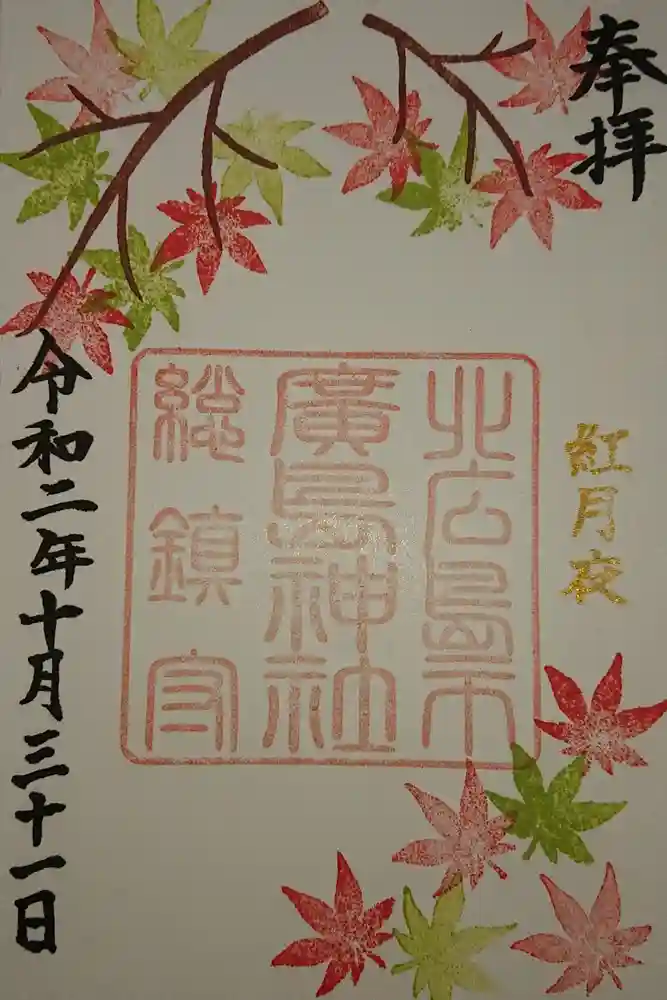 奉拝
紅月夜
北広島市
廣島神社
総鎮守
令和二年十月三十一日